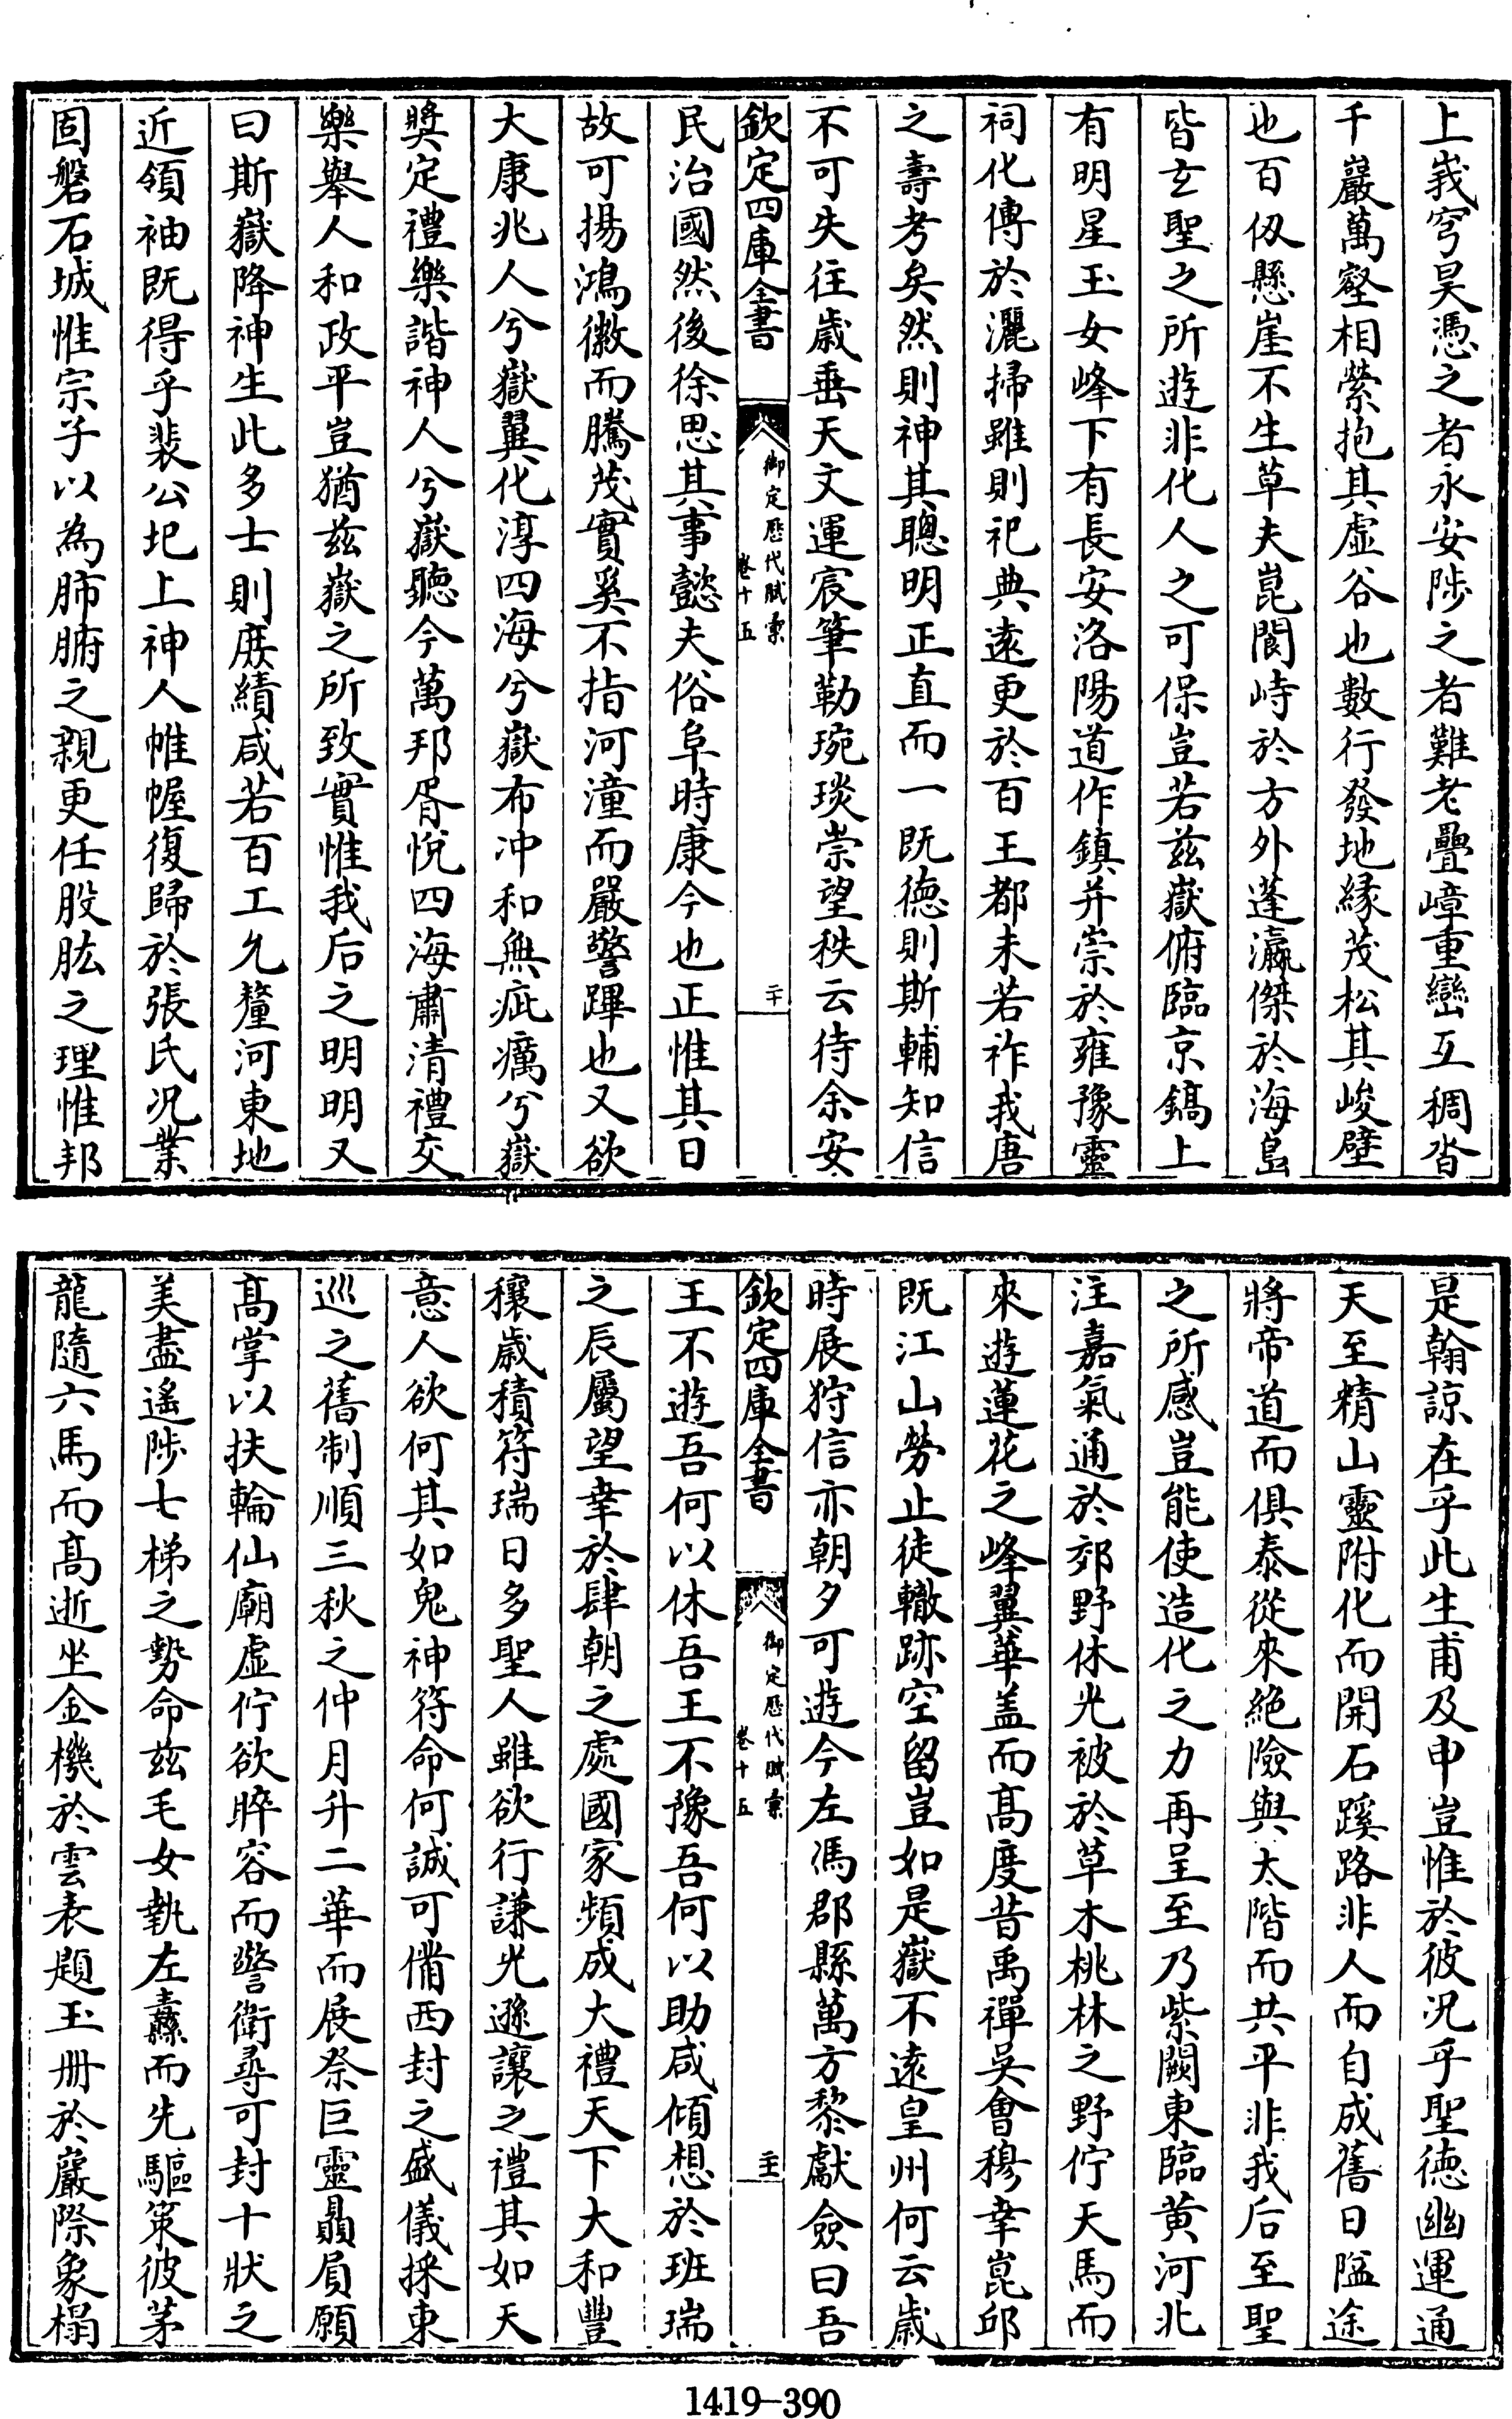 上峩穹昊憑之者永安陟之者難老疊嶂重巒互稠沓
千巖萬壑相縈抱其虛谷也數行發地緣茂松其峻壁
也百仭懸崖不生草夫崑閬峙於方外蓬瀛傑於海島
皆玄聖之所遊非化人之可保豈若茲嶽俯臨京鎬上
有明星玉女峰下有長安洛陽道作鎮并崇於雍豫靈
祠化傳於灑掃雖則祀典遠更於百王都未若祚我唐
之壽考矣然則神其聰明正直而一既德則斯輔知信
不可失往歲垂天文運宸筆勒琬琰崇望秩云待余安
欽定四庫全書
御定歷代賦彙
卷十五
二十
民治國然後徐思其事懿夫俗阜時康今也正惟其日
故可揚鴻徽而騰茂實奚不指河潼而嚴警蹕也又欲
大康兆人兮嶽翼化淳四海兮嶽布冲和無疵癘兮嶽
奬定禮樂諧神人兮嶽聽今萬邦胥悅四海肅清禮交
樂舉人和政平豈猶茲嶽之所致實惟我后之明明又
曰斯嶽降神生此多士則庶績咸若百工允釐河東地
近領袖既得乎裴公圯上神人帷幄復歸於張氏況業
固磐石城惟宗子以為肺腑之親更任股肱之理惟邦
是翰諒在乎此生甫及申豈惟於彼況乎聖德幽運通
天至精山靈附化而開石蹊路非人而自成舊日隘途
將帝道而俱泰從來絕險與太階而共平非我后至聖
之所感豈能使造化之力再呈至乃紫闕東臨黃河北
注嘉氣通於郊野休光被於草木桃林之野佇天馬而
來遊蓮花之峰翼華盖而高度昔禹禪吳會穆幸崑邱
既江山勞止徒轍跡空留豈如是嶽不遠皇州何云歲
時展狩信亦朝夕可遊今左馮郡縣萬方黎獻僉曰吾
欽定四庫全書
御定歷代賦彙
卷十五
二十一
王不遊吾何以休吾王不豫吾何以助咸傾想於班瑞
之辰屬望幸於肆朝之處國家頻成大禮天下大和豐
穰歲積符瑞日多聖人雖欲行謙光遜讓之禮其如天
意人欲何其如鬼神符命何誠可備西封之盛儀採東
巡之舊制順三秋之仲月升二華而展祭巨靈贔屓願
髙掌以扶輪仙廟虛佇欲睟容而警衛尋可封十狀之
美盡遙陟七梯之勢命茲毛女執左纛而先驅策彼茅
龍隨六馬而髙逝坐金機於雲表題玉冊於巖際象榻
1419-390